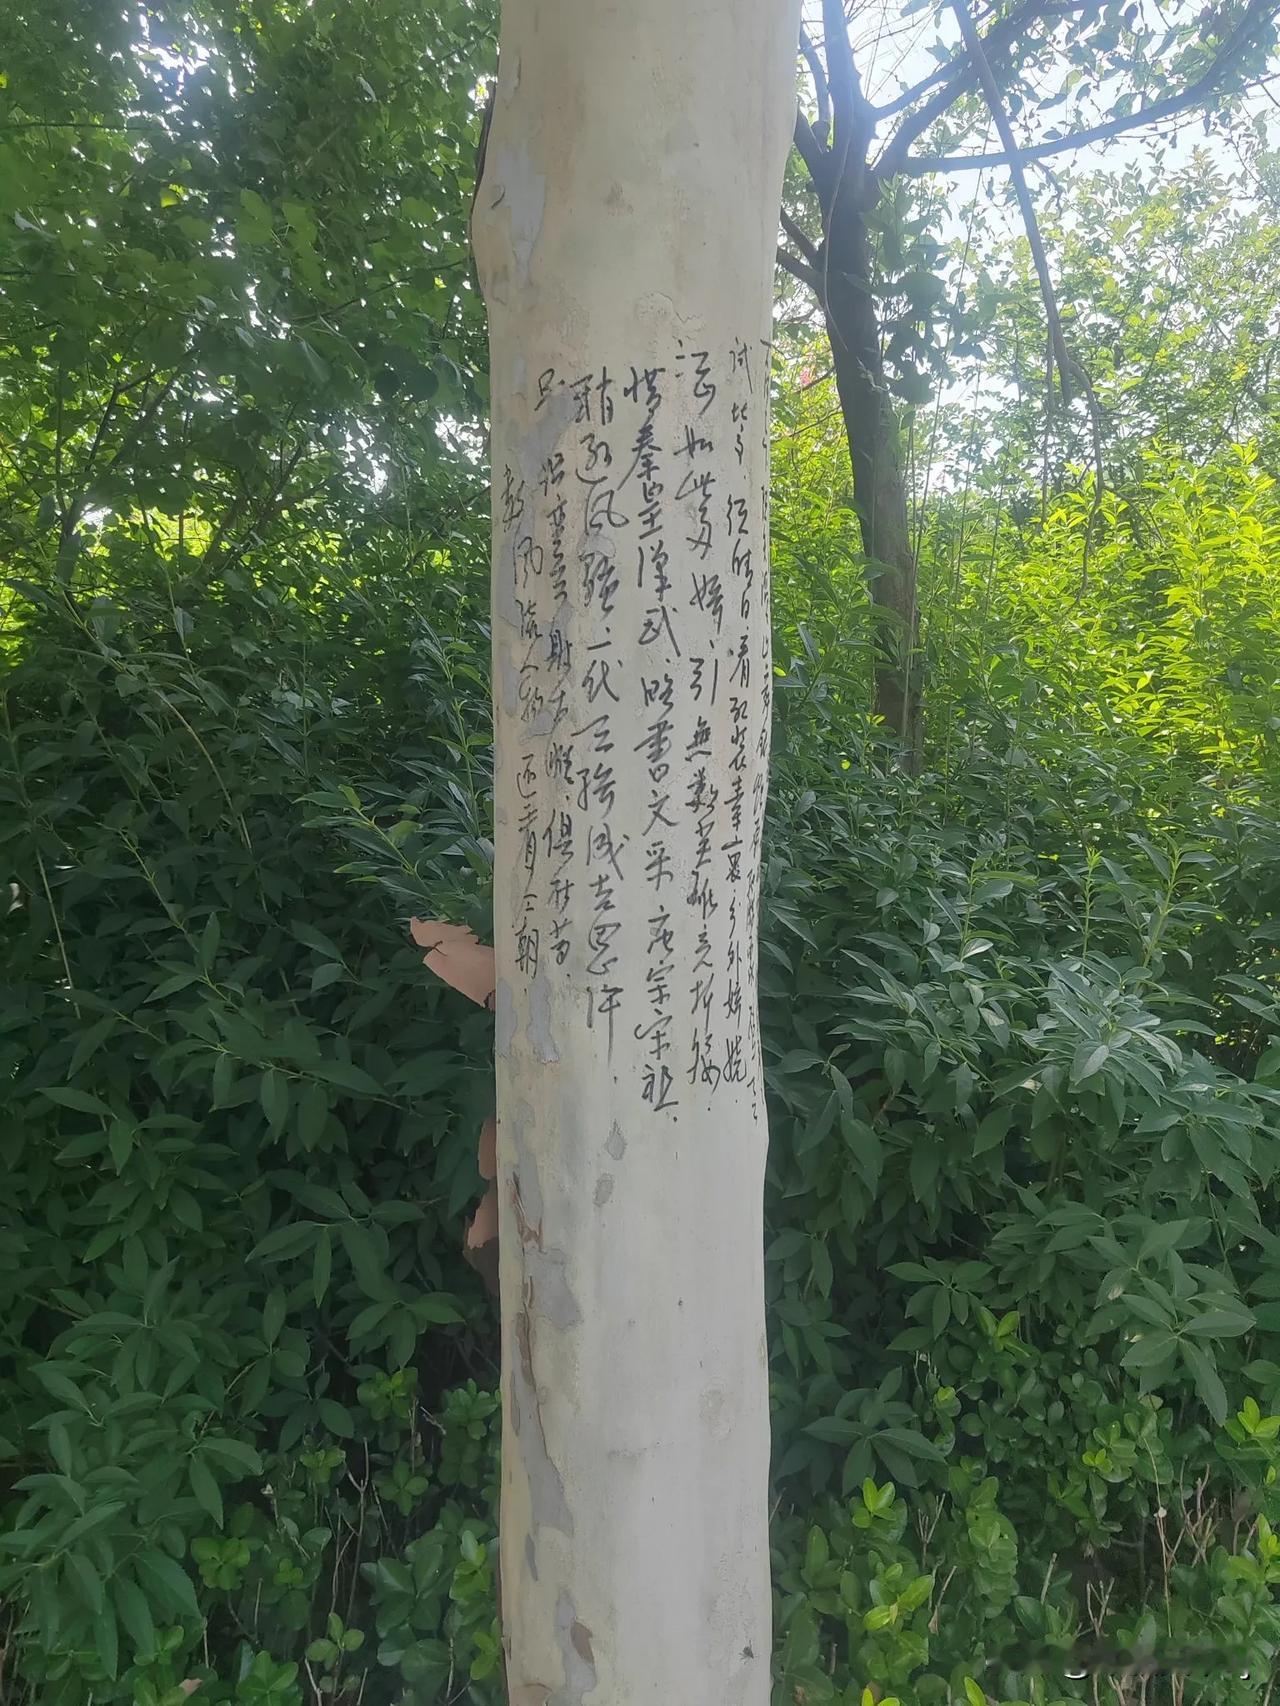 试比高 须晴日看红装素裹、分外妖娆.
江山如此多娇、引無数英雄竞折腰.
惜秦皇漢武、略書文采 唐宗宋祖.
稍逊风骚、一代天骄成吉思汗.
只识弯弓射大雕、俱往矣、
数风流人物 还看今朝